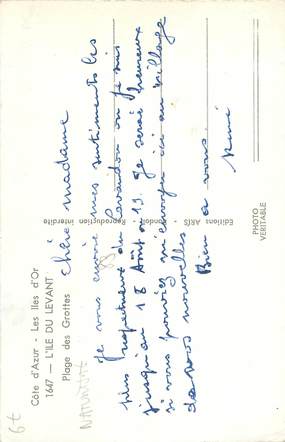 Côte d'Azur - Les Iles d'Or
1647 — L'ILE DU LEVANT
Plage des Grottes
Chère madame
Je vous envoie mes sentiments les
plus respectueux du Lavandou où je suis
jusqu'au 18 Août ou 19. Je serai heureux
si vous pouviez m'envoyer ici au village
de vos nouvelles
Bien à vous.
René
Editions ARIS
Reproduction interdite
PHOTO
VERITABLE
6€